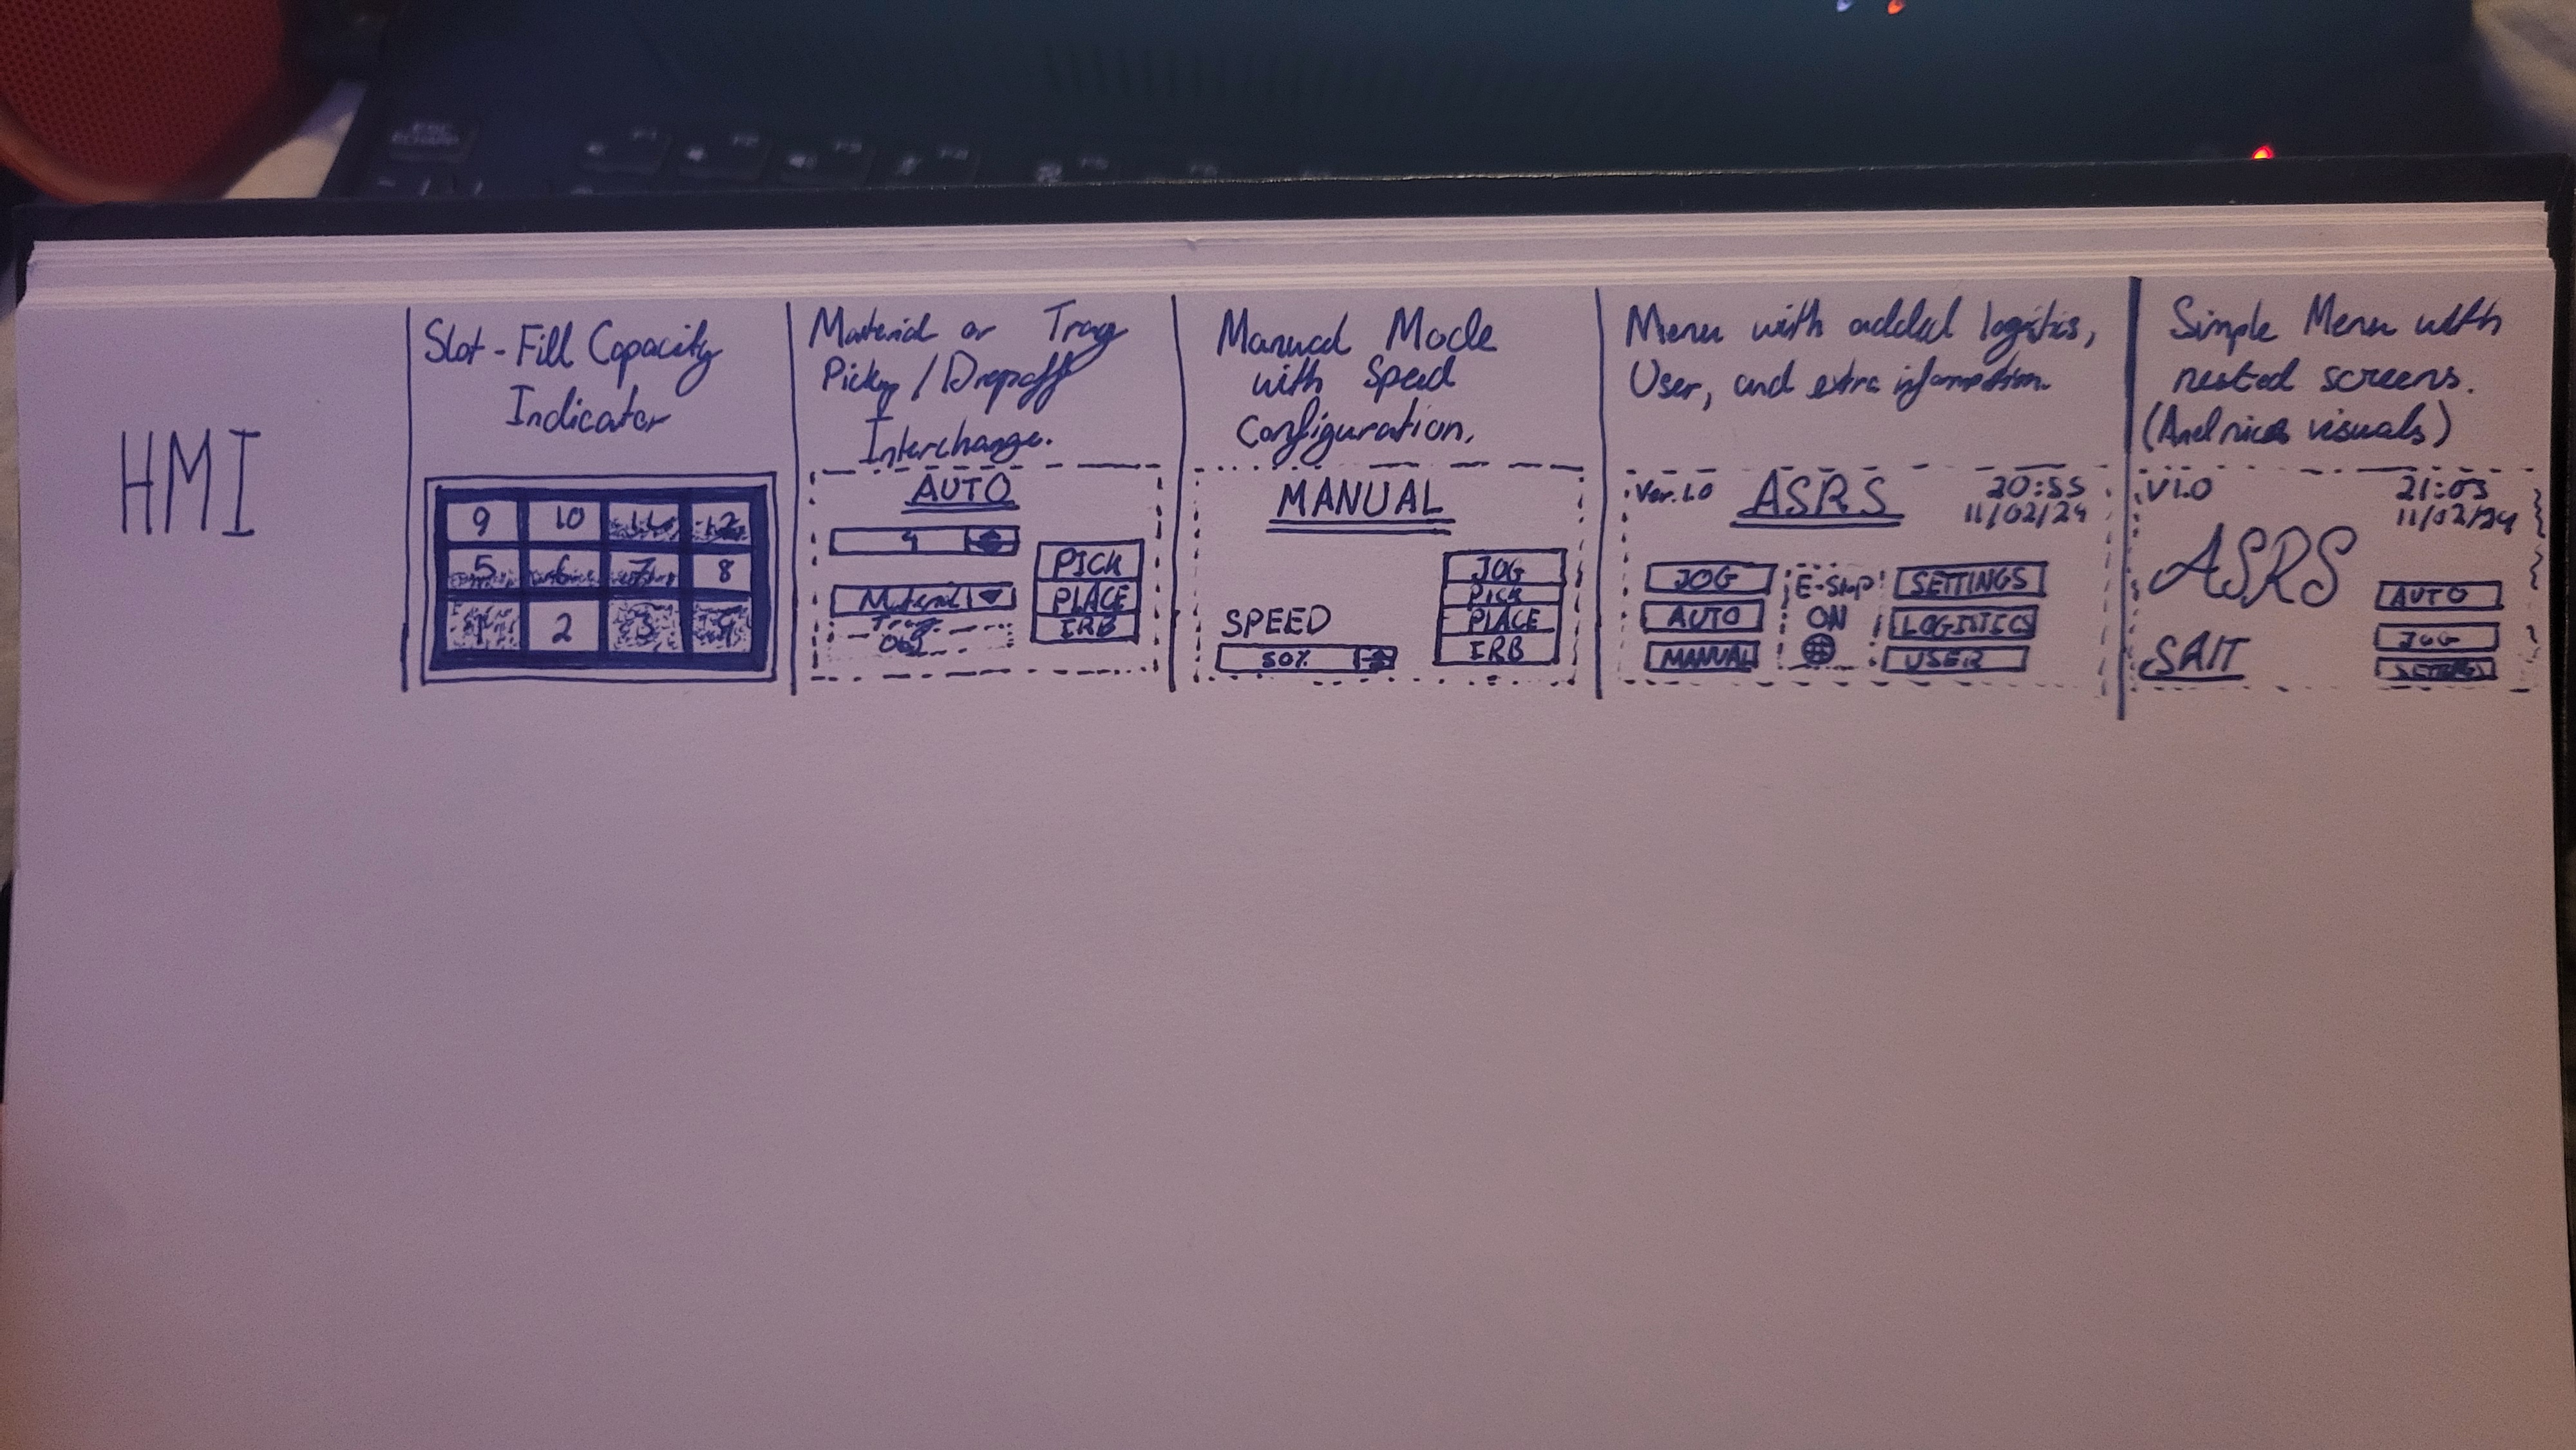 HMI
Slot-Fill Capacity
Indicator
9 10 11 12
5 6 7 8
1 2 3 4
Material or Tray
Pickup/Dropoff
Interchange.
AUTO
4
Material
Tray
Obj
PICK
PLACE
IRB
Manual Mode
with Speed
Configuration.
MANUAL
SPEED
50%
JOG
PICK
PLACE
IRB
Menu with added logistics,
User, and extra information.
Ver. 1.0 ASRS 20:55
11/02/24
JOG
AUTO
MANUAL
E-Stop
ON
SETTINGS
LOGISTICS
USER
Simple Menu with
nested screens.
(And nicer visuals)
V1.0 21:03
11/02/24
ASRS
SAIT
AUTO
JOG
SETTINGS
ESC
F1 F2 F3 F4 F5 F6